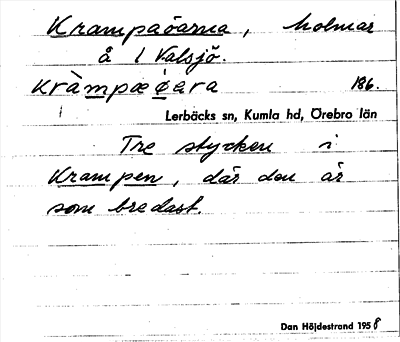 Krampaöarna, holmar
å l Valsjö.
kràmpæøara 186.
Lerbäcks sn, Kumla hd, Örebro län
Tre stycken i
Krampen, där den är
som bredast.
Dan Höjdestrand 1958